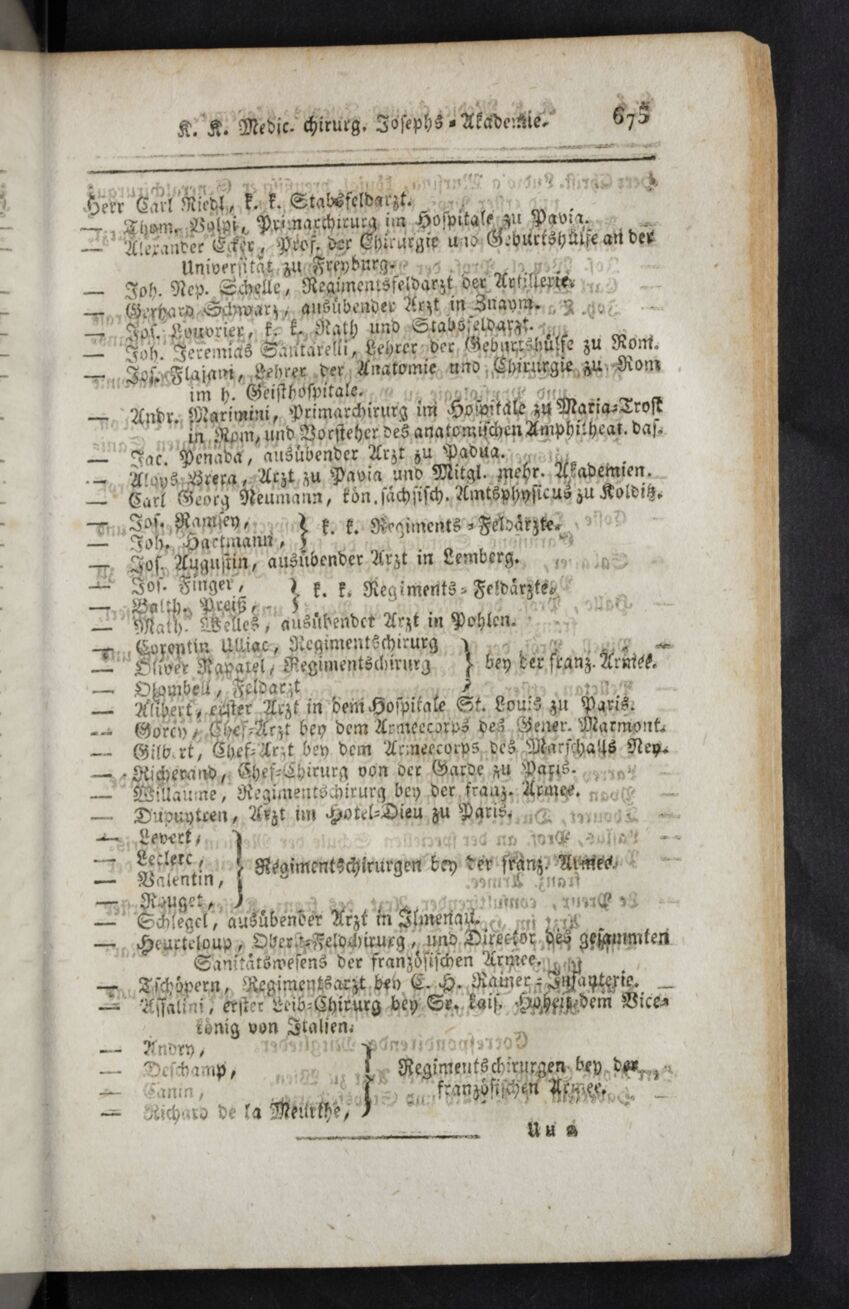 K. K. Medic. chirurg. Josephs-Akademie. 675
Herr Carl Riedl, k. k. Stabsfeldarzt.
— Thom. Volpi, Primarchirurg im Hospitale zu Pavia.
— Alexander Ecker, Prof. der Chirurgie und Geburtshülfe an der
Universität zu Freyburg.
— Joh. Nep. Schelle, Regimentsfeldarzt der Artillerie.
— Gerhard Schwarz, ausübender Arzt in Znaym.
— Jos. Louvrier, k. k. Rath und Stabsfeldarzt.
— Joh. Jeremias Santarelli, Lehrer der Geburtshülfe zu Rom.
— Jos. Flajani, Lehrer der Anatomie und Chirurgie zu Rom
im h. Geisthospitale.
— Andr. Marimini, Primarchirurg im Hospitale zu Maria-Trost
in Rom, und Vorsteher des anatomischen Amphitheat. das.
— Jac. Penada, ausübender Arzt zu Padua.
— Aloys Brera, Arzt zu Pavia und Mitgl. mehr. Akademien.
— Carl Georg Neumann, kön. sächsisch. Amtsphysicus zu Kolditz.
— Jos. Ramsey,
— Joh. Hartmann, } k. k. Regiments-Feldärzte.
— Jos. Augustin, ausübender Arzt in Lemberg.
— Jos. Finger,
— Balth. Preiß, } k. k. Regiments-Feldärzte.
— Math. Welles, ausübender Arzt in Pohlen.
— Corentin Ulliac, Regimentschirurg
— Oliver Rapatel, Regimentschirurg } bey der franz. Armee.
— Feldarzt
— Alibert, erster Arzt in dem Hospitale St. Louis zu Paris.
— Gorcy, Chef-Arzt bey dem Armeecorps des Gener. Marmont.
— Gilbert, Chef-Arzt bey dem Armeecorps des Marschalls Ney.
— Richerand, Chef-Chirurg von der Garde zu Paris.
— Willaume, Regimentschirurg bey der franz. Armee.
— Dupuytren, Arzt im Hotel-Dieu zu Paris.
— Levert,
— Leclerc,
— Valentin, } Regimentschirurgen bey der franz. Armee.
— Rouget,
— Schlegel, ausübender Arzt in Ilmenau.
— Heurteloup, Oberst-Feldchirurg, und Director des gesammten
Sanitätswesens der französischen Armee.
— Tschöpern, Regimentsarzt bey E. H. Rainer-Infanterie.
— Assalini, erster Leib-Chirurg bey Sr. kais. Hoheit dem Vice-
könig von Italien.
— Andry,
— Deschamp, } Regimentschirurgen bey der
— Canin, französischen Armee.
— Richard de la Meurthe,
Uu 2